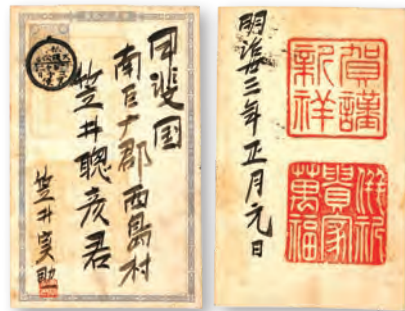 甲斐国
南巨广郡西島村
笠井聰彦君
笠井実助
明治廿三年正月元日
賀謹
新祥
併祝
貴家
萬福